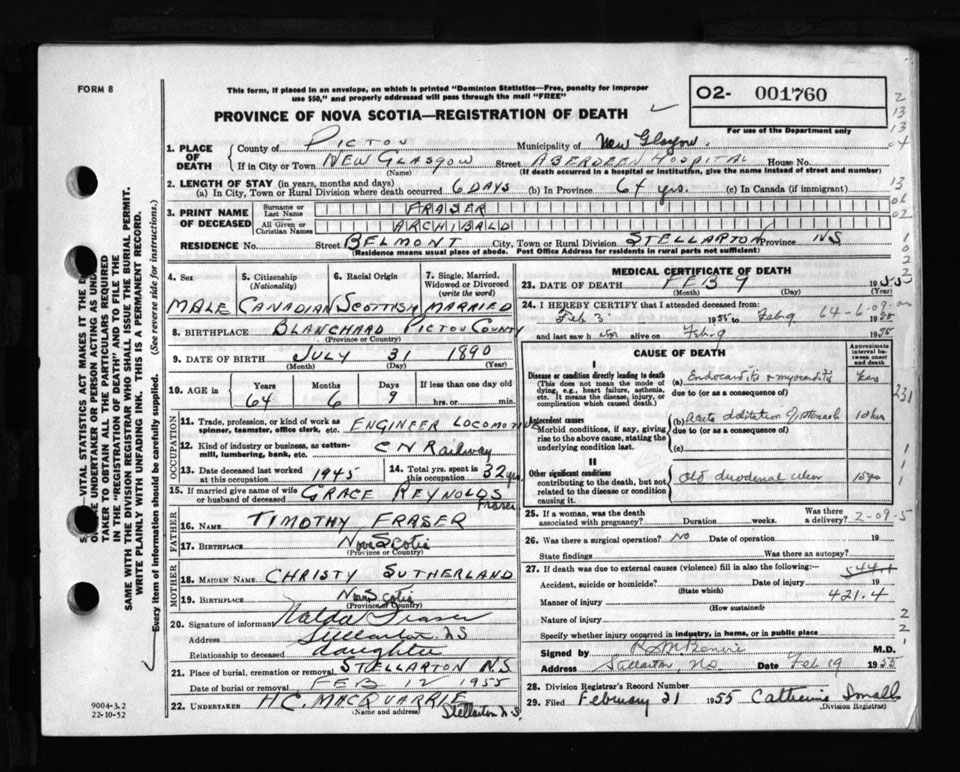 FORM 8
This form, if placed in an envelope, on which is printed "Dominion Statistics—Free, penalty for improper
use $50," and properly addressed will pass through the mail "FREE"
O2- 001760
For use of the Department only
PROVINCE OF NOVA SCOTIA—REGISTRATION OF DEATH
1. PLACE OF DEATH
County of PICTOU Municipality of New Glasgow.
If in City or Town NEW GLASGOW Street ABERDEEN HOSPITAL House No.
(Name) (If death occurred in a hospital or institution, give the name instead of street and number)
2. LENGTH OF STAY (in years, months and days)
(a) In City, Town or Rural Division where death occurred 6 DAYS (b) In Province 64 yrs. (c) In Canada (if immigrant)
3. PRINT NAME OF DECEASED
Surname or Last Name FRASER
All Given or Christian Names ARCHIBALD
RESIDENCE No. Street BELMONT City, Town or Rural Division STELLARTON Province NS
(Residence means usual place of abode. Post Office Address for residents in rural parts not sufficient)
4. Sex
MALE
5. Citizenship (Nationality)
CANADIAN
6. Racial Origin
SCOTTISH
7. Single, Married, Widowed or Divorced (write the word)
MARRIED
8. BIRTHPLACE BLANCHARD PICTOU COUNTY
(Province or Country)
9. DATE OF BIRTH JULY 31 1890
(Month) (Day) (Year)
10. AGE in
Years Months Days If less than one day old
64 6 9 hrs. or min.
OCCUPATION
11. Trade, profession, or kind of work as spinner, teamster, office clerk, etc. ENGINEER LOCOMOTIVE
12. Kind of industry or business, as cotton-mill, lumbering, bank, etc. CN Railway
13. Date deceased last worked at this occupation 1945
14. Total yrs. spent in this occupation 32 yrs
15. If married give name of wife or husband of deceased GRACE REYNOLDS Fraser
FATHER
16. NAME TIMOTHY FRASER
17. BIRTHPLACE Nova Scotia
(Province or Country)
MOTHER
18. MAIDEN NAME CHRISTY SUTHERLAND
19. BIRTHPLACE Nova Scotia
(Province or Country)
20. Signature of informant Nalda Fraser
Address Stellarton NS
Relationship to deceased daughter
21. Place of burial, cremation or removal STELLARTON NS
Date of burial or removal FEB 12 1955
22. UNDERTAKER H.C. MACQUARRIE Stellarton N.S.
(Name and address)
MEDICAL CERTIFICATE OF DEATH
23. DATE OF DEATH FEB 9 1955
(Month) (Day)
24. I HEREBY CERTIFY that I attended deceased from:
Feb 3 1955 to Feb 9 1955
64-6-09
and last saw h im alive on Feb 9 1955
CAUSE OF DEATH
Approximate interval between onset and death
I
Disease or condition directly leading to death
(This does not mean the mode of dying, e.g., heart failure, asthenia, etc. It means the disease, injury, or complication which caused death.)
(a) Endocarditis & myocarditis
due to (or as a consequence of)
Antecedent causes
Morbid conditions, if any, giving rise to the above cause, stating the underlying condition last.
(b) Acute dilitation of stomach
due to (or as a consequence of)
(c)
II
Other significant conditions
contributing to the death, but not related to the disease or condition causing it.
Old duodenal ulcer
25. If a woman, was the death associated with pregnancy? Duration weeks. Was there a delivery?
2-09-5
26. Was there a surgical operation? NO Date of operation 19
State findings Was there an autopsy?
27. If death was due to external causes (violence) fill in also the following:
Accident, suicide or homicide? Date of injury 19
(State which)
421.4
Manner of injury
(How sustained)
Nature of injury
Specify whether injury occurred in industry, in home, or in public place
Signed by
Address Stellarton, NS Date Feb 19 1955
28. Division Registrar's Record Number
29. Filed February 21 1955 Catherine Smalls
(Division Registrar)
9004-3.2
22-10-52
UNDERTAKER OR PERSON ACTING AS
TAKER TO OBTAIN ALL THE PARTICULARS REQUIRED
IN THE "REGISTRATION OF DEATH" AND TO FILE THE
SAME WITH THE DIVISION REGISTRAR WHO SHALL ISSUE THE BURIAL PERMIT.
WRITE PLAINLY WITH UNFADING INK. THIS IS A PERMANENT RECORD.
Every item of information should be carefully supplied. (See reverse side for instructions.)